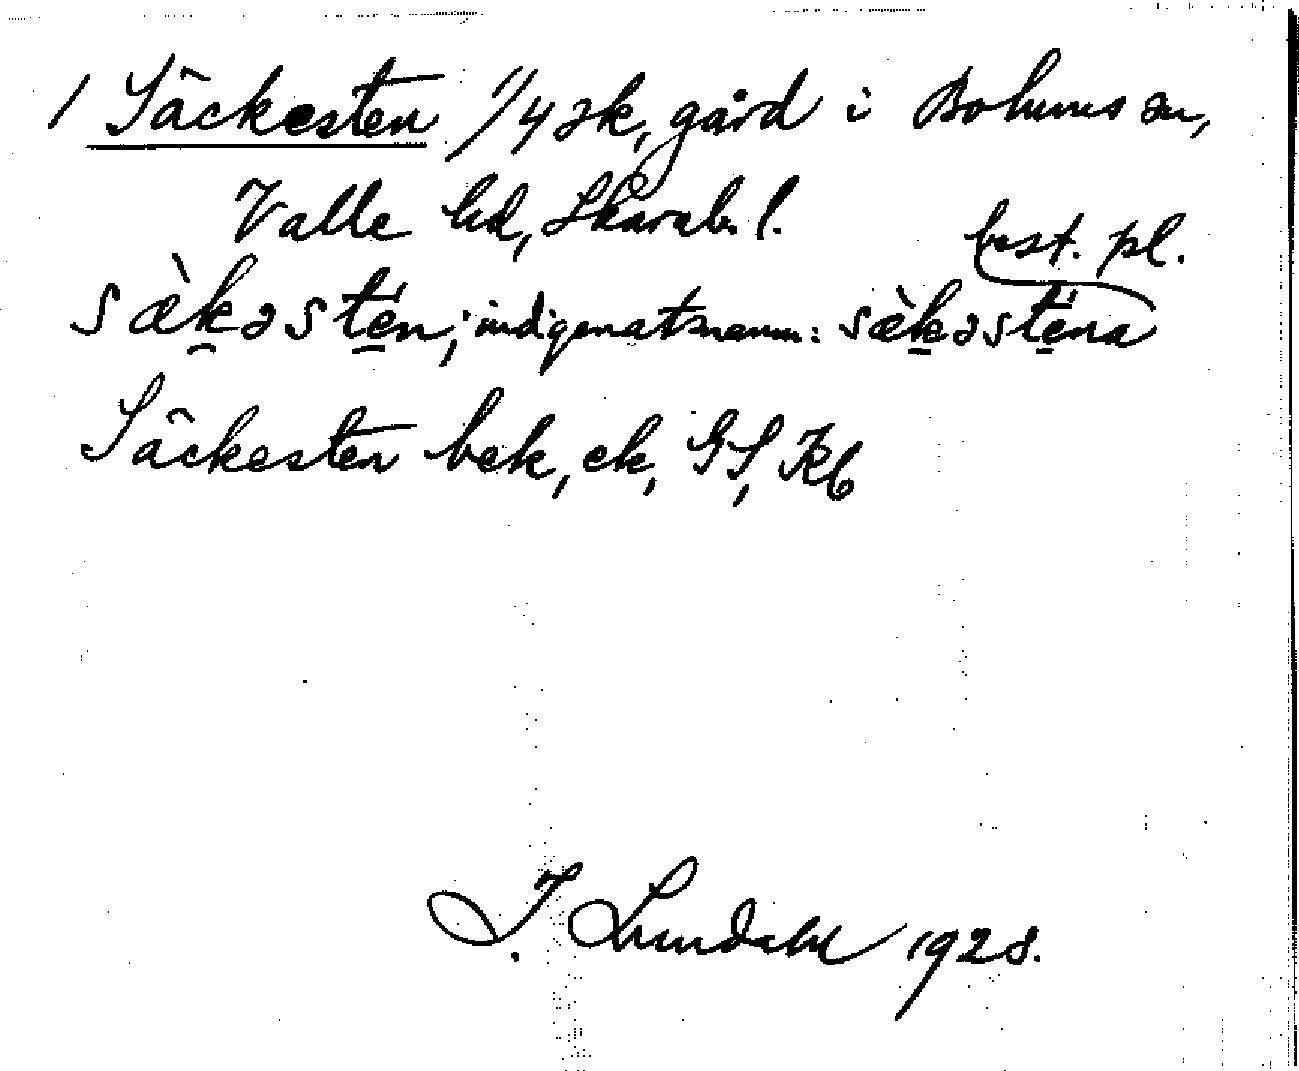 1 Säckesten 1/4 ek, gård i Bolums sn,
Valle hd, Skarab. l.
best. pl.
sæ̀kəstén; indigenatsnamn: sæ̀kəsténa
Säckesten bek, ek, GS, Kb
I. Lundahl 1928.